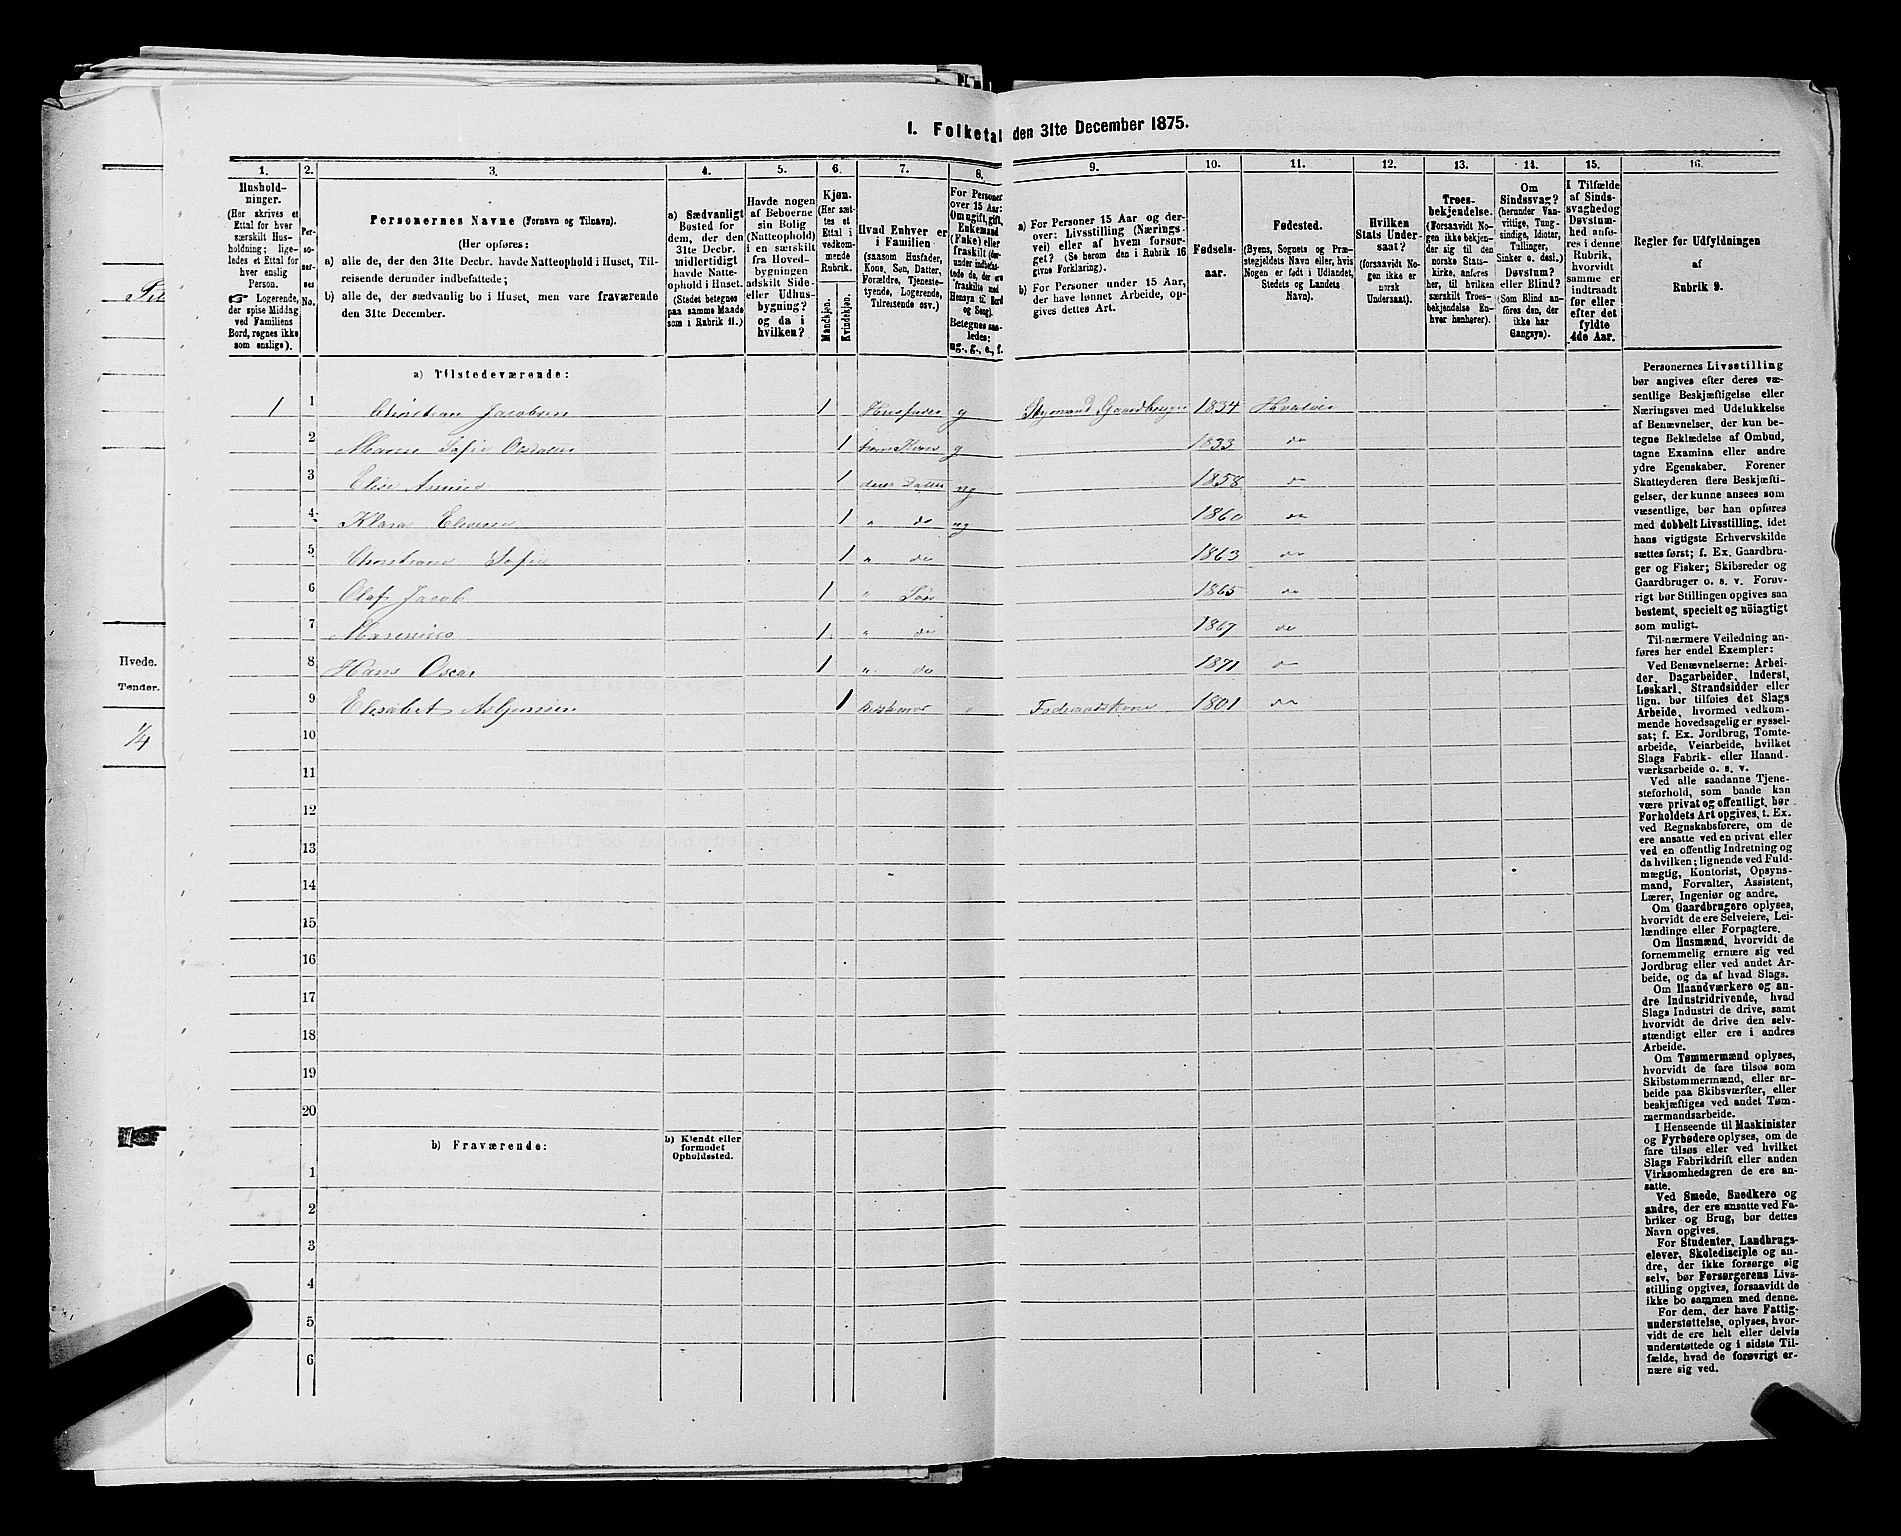 I. Folketal den 31te December 1875.
1. 2. 3. 4. 5. 6. 7. 8. 9. 10. 11. 12. 13. 14. 15. 16.
Hushold-
ninger.
(Her skrives et
Ettal for hver
særskilt Hus-
holdning; lige-
ledes et Ettal for
hver enslig
Person.
Logerende,
der spise Middag
ved Familiens
Bord, regnes ikke
som enslige).
Per-
so-
ner-
nes
No.
Personernes Navne (Fornavn og Tilnavn).
(Her opføres:
a) alle de, der den 31te Decbr. havde Natteophold i Huset, Til-
reisende derunder indbefattede;
b) alle de, der sædvanlig bo i Huset, men vare fraværende
den 31te December.
a) Sædvanligt
Bosted for
dem, der den
31te Decbr.
midlertidigt
havde Natte-
ophold i Huset.
(Stedet betegnes
paa samme Maade
som i Rubrik 11.)
Havde nogen
af Beboerne
sin Bolig
(Natteophold)
i en særskilt
fra Hoved-
bygningen
adskilt Side-
eller Udhus-
bygning?
og da i
hvilken?
Kjøn.
(Her sæt-
tes et
Ettal i
vedkom-
mende
Rubrik.
Mandkjøn.
Kvindekjøn.
Hvad Enhver er
i Familien
(saasom Husfader,
Kone, Søn, Datter,
Forældre, Tjeneste-
tyende, Logerende,
Tilreisende osv.)
For Personer
over 15 Aar:
Om ugift, gift,
Enkemand
(Enke) eller
fraskilt (her-
under indbefat-
tede de, der ere
fraskilte med
Hensyn til Bord
og Seng).
Betegnes saa-
ledes:
ug., g., e., f.
a) For Personer 15 Aar og der-
over: Livsstilling (Nærings-
vei) eller af hvem forsør-
get? (Se herom den i Rubrik 16
givne Forklaring).
b) For Personer under 15 Aar,
der have lønnet Arbeide, op-
gives dettes Art.
Fødsels-
aar.
Fødested.
(Byens, Sognets og Præ-
stegjeldets Navn eller, hvis
Nogen er født i Udlandet,
Stedets og Landets
Navn).
Hvilken
Stats Under-
saat?
(forsaavidt No-
gen ikke er
norsk
Undersaat).
Troes-
bekjendelse.
(Forsaavidt No-
gen ikke bekjen-
der sig til den
norske Stats-
kirke, anføres
her, til hvilken
særskilt Troes-
bekjendelse En-
hver henhører).
Om
Sindssvag?
(herunder Van-
vittige, Tung-
sindige, Idioter,
Tullinger,
Sinker o. desl.)
Døvstum?
eller Blind?
(Som Blind an-
føres den, der
ikke har
Gangsyn).
I Tilfælde
af Sinds-
svaghed og
Døvstum-
hed anfø-
res i denne
Rubrik,
hvorvidt
samme er
indtraadt
før eller
efter det
fyldte
4de Aar.
Regler for Udfyldningen
af
Rubrik 9.
a) Tilstedeværende:
1 1 Christian Jacobsen 1 Husfader g Styrmand Gaardbruger 1834 Hvaløer
2 Maren Sofie Olsdatter 1 hans Kone g 1833 do
3 Elise 1 deres Datter ug 1858 do
4 Klara 1 " do ug 1860 do
5 Christiane Sofie 1 " do 1863 do
6 Olaf Jacob 1 " Søn 1865 do
7 Marenius 1 " do 1867 do
8 Hans Oscar 1 " do 1871 do
9 Elisabet Asbjørnsen 1 Bestemor 1801 do
10
11
12
13
14
15
16
17
18
19
20
b) Fraværende:
b) Kjendt eller
formodet
Opholdssted.
1
2
3
4
5
6
Personernes Livsstilling
bør angives efter deres væ-
sentlige Beskjæftigelse eller
Næringsvei med Udelukkelse
af Benævnelser, der kun be-
tegne Beklædelse af Ombud,
tagne Examina eller andre
ydre Egenskaber. Forener
Skatteyderen flere Beskjæfti-
gelser, der kunne ansees som
væsentlige, bør han opføres
med dobbelt Livsstilling, idet
hans vigtigste Erhvervskilde
sættes først; f. Ex. Gaardbru-
ger og Fisker; Skibsreder og
Gaardbruger o. s. v. Forøv-
rigt bør Stillingen opgives saa
bestemt, specielt og nöiagtigt
som muligt.
Til nærmere Veiledning an-
føres her endel Exempler:
Ved Benævnelserne: Arbei-
der, Dagarbeider, Inderst,
Løskarl, Strandsidder eller
lign. bør tilføies det Slags
Arbeide, hvormed vedkom-
mende hovedsagelig er syssel-
sat; f. Ex. Jordbrug, Tomte-
arbeide, Veiarbeide, hvilket
Slags Fabrik- eller Haand-
værksarbeide o. s. v.
Ved alle saadanne Tjene-
steforhold, som baade kan
være privat og offentligt, bør
Forholdets Art opgives, t. Ex.
ved Regnskabsførere, om de
ere ansatte ved en privat eller
ved en offentlig Indretning og
da hvilken; lignende ved Fuld-
mægtig, Kontorist, Opsyns-
mand, Forvalter, Assistent,
Lærer, Ingeniør og andre.
Om Gaardbrugere oplyses,
hvorvidt de ere Selveiere, Lei-
lændinge eller Forpagtere.
Om Husmænd, hvorvidt de
fornemmelig ernære sig ved
Jordbrug eller ved andet Ar-
beide, og da af hvad Slags.
Om Haandværkere og an-
dre Industridrivende, hvad
Slags Industri de drive, samt
hvorvidt de drive den selv-
stændigt eller ere i andres
Arbeide.
Om Tømmermænd oplyses,
hvorvidt de fare tilsøs som
Skibstømmermænd, eller ar-
beide paa Skibsværfter, eller
beskjæftiges ved andet Tøm-
mermandsarbeide.
I Henseende til Maskinister
og Fyrbødere oplyses, om de
fare tilsøs eller ved hvilket
Slags Fabrikdrift eller anden
Virksomhedsgren de ere an-
satte.
Ved Smede, Snedkere og
andre, der ere ansatte ved Fa-
briker og Brug, bør dettes
Navn opgives.
For Studenter, Landbrugs-
elever, Skoledisciple og an-
dre, der ikke forsørge sig
selv, bør Forsørgerens Livs-
stilling opgives, forsaavidt de
ikke bo sammen med denne.
For dem, der have Fattig-
understøttelse, oplyses, hvor-
vidt de ere helt eller delvis
understøttede og i sidste Til-
fælde, hvad de forøvrigt er-
nære sig ved.
Hvede.
Tønder.
1/4